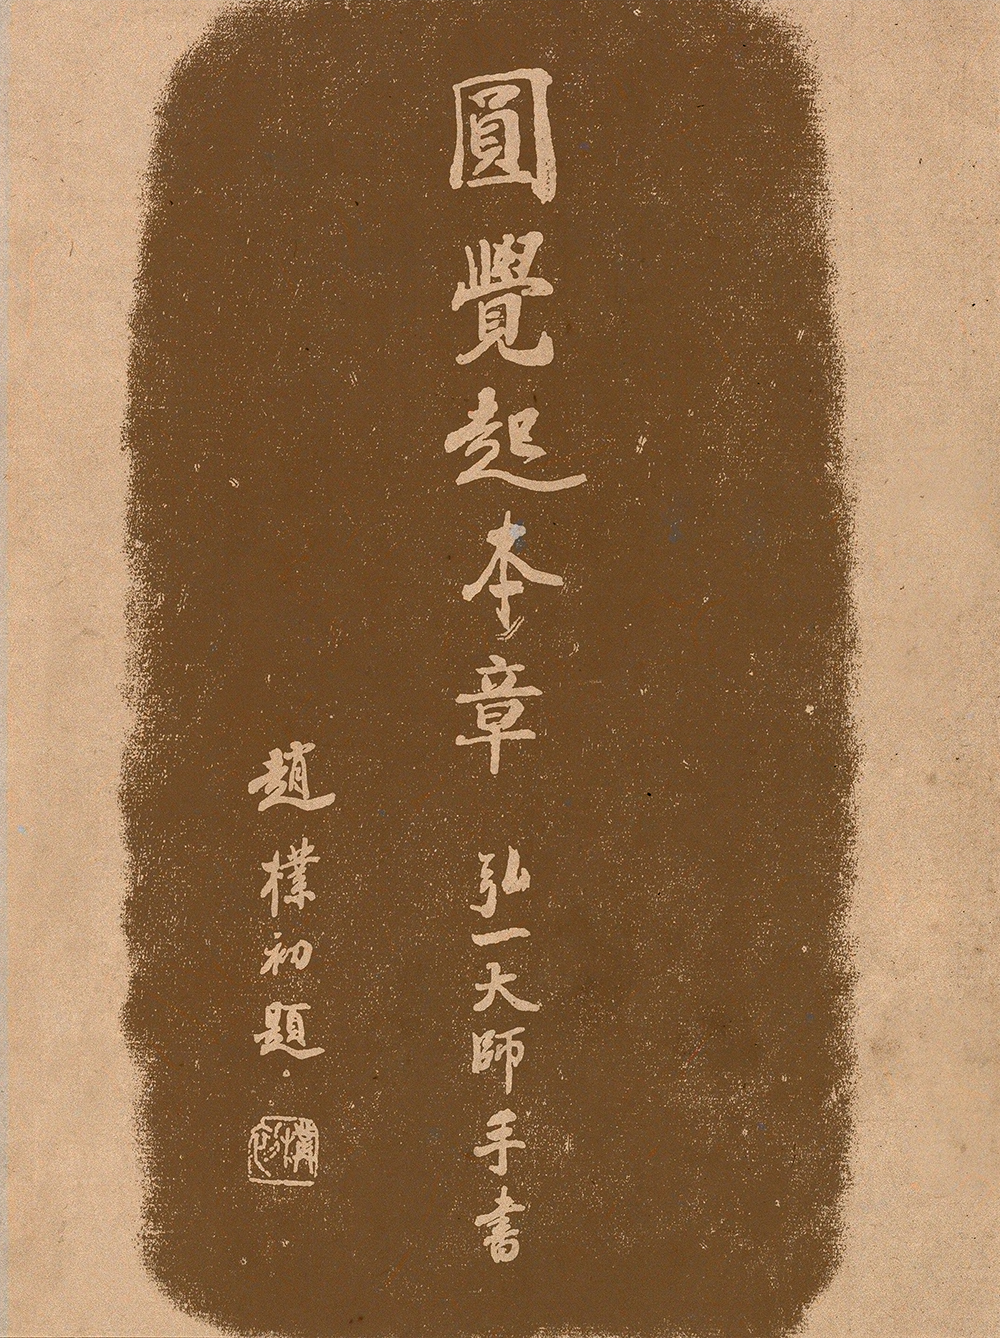 圓覺起本章 弘一大師手書
趙樸初題
樸初